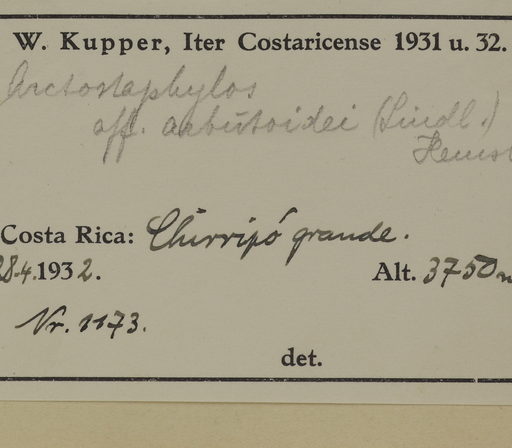 W. Kupper, Iter Costaricense 1931 u. 32.
Arctostaphylos
aff. arbutoidei (Lindl.)
Hemsl
Costa Rica: Chirripó grande.
28.4.1932. Alt. 3750 m
Nr. 1173.
det.